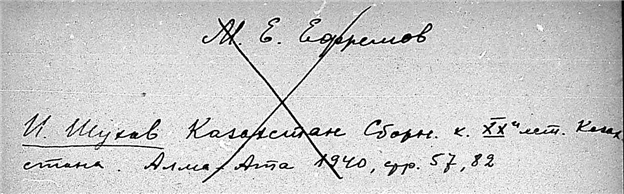 М. Е. Ефремов
И. Шухов Казахстан Сборн. к. XX" лет. Казах
стана. Алма-Ата 1940, стр. 57, 82